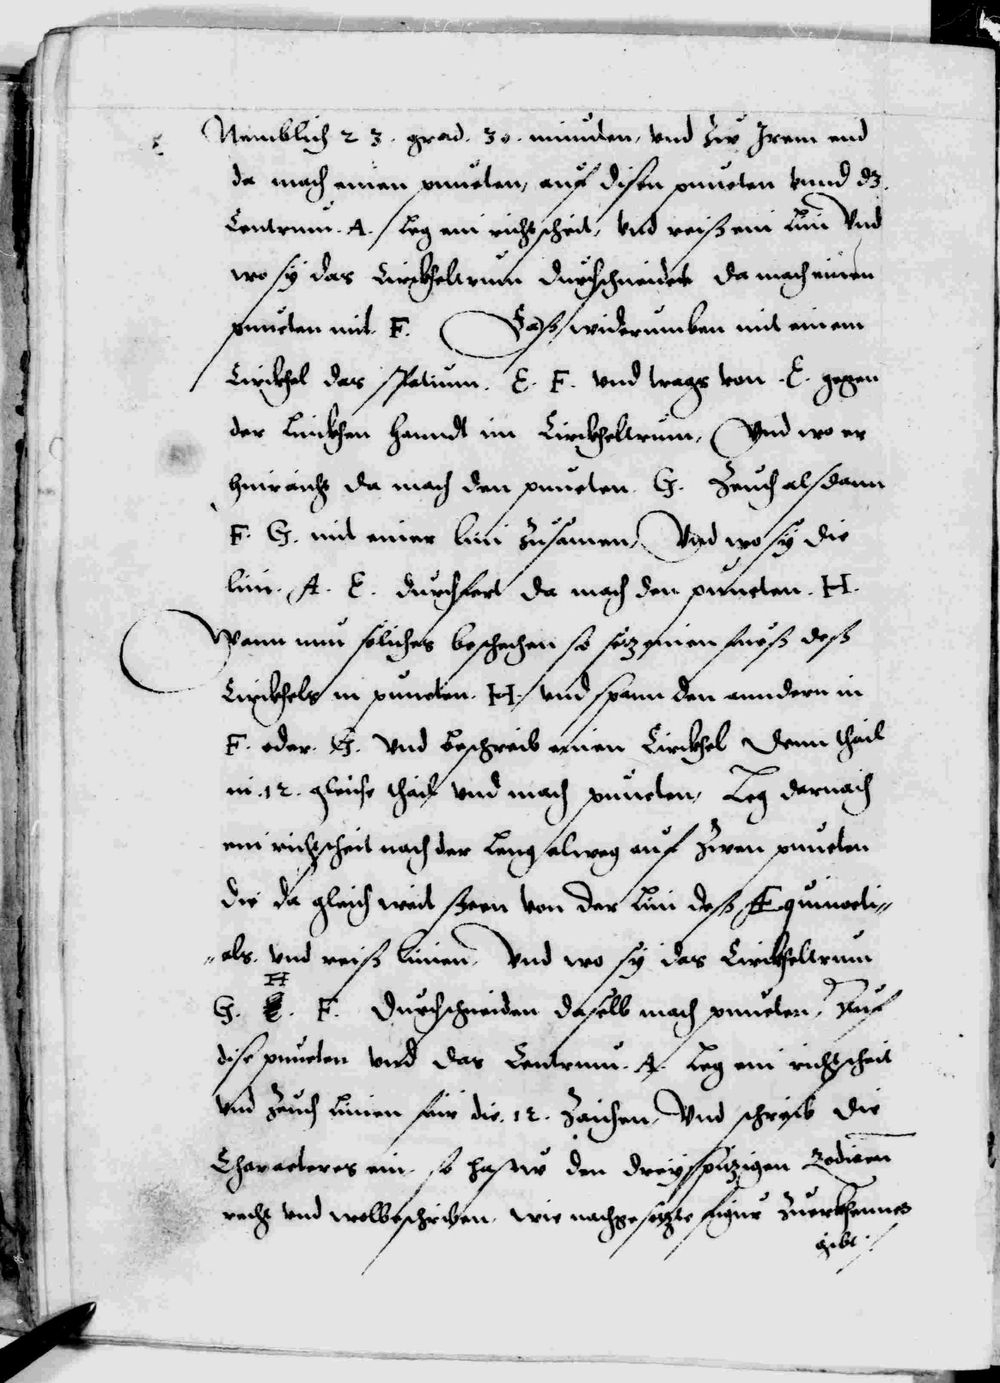 Nemblich 23. grad. 30. minuten, vnd zw Irem end
da mach einen puncten, auf disen puncten vnnd dz.
Centrum. A. Leg ein richtscheit, vnd reiß ein Lini Vnd
wo sÿ das Cirkheltrum durchschneidet da mach einen
puncten mit. F. Faß widerumben mit einem
Circkhel das Spatium. E. F. vnd trags von .E. gegen
der Linckhen Hanndt im Circkheltrum, Vnd wo er
hinraicht da mach den puncten. G. Zeuch alsdann
F. G. mit einer lini zusamen, Vnd wo sÿ die
lini. A. E. durchfert da mach den puncten. H.
Wann nun soliches beschechen so setz einen fueß deß
Circkhels in puncten. H. vnd spann den anndern in
F. oder. G. vnd beschreib einen Circkhel Denn thail
in .12. gleiche thail vnd mach puncten, Leg darnach
ein richtscheit nach der Leng alweg auf zwen puncten
die da gleich weit steen von der Lini deß Æquinocti„
„als. vnd reiß linien, Vnd wo sÿ das Circkheltrum
H
G. . F. durchschneiden daselb mach puncten, Auf
dise puncten vnd das Centrum. A. Leg ein richtscheit
vnd zeuch Linien für die .12. Zaichen, Vnd schreib die
Characteres ein. so hastw den dreÿspitzigen Zodiacen
recht vnd wolbeschriben, wie nachgesetzte figur zuerkhennen
gibt ./.